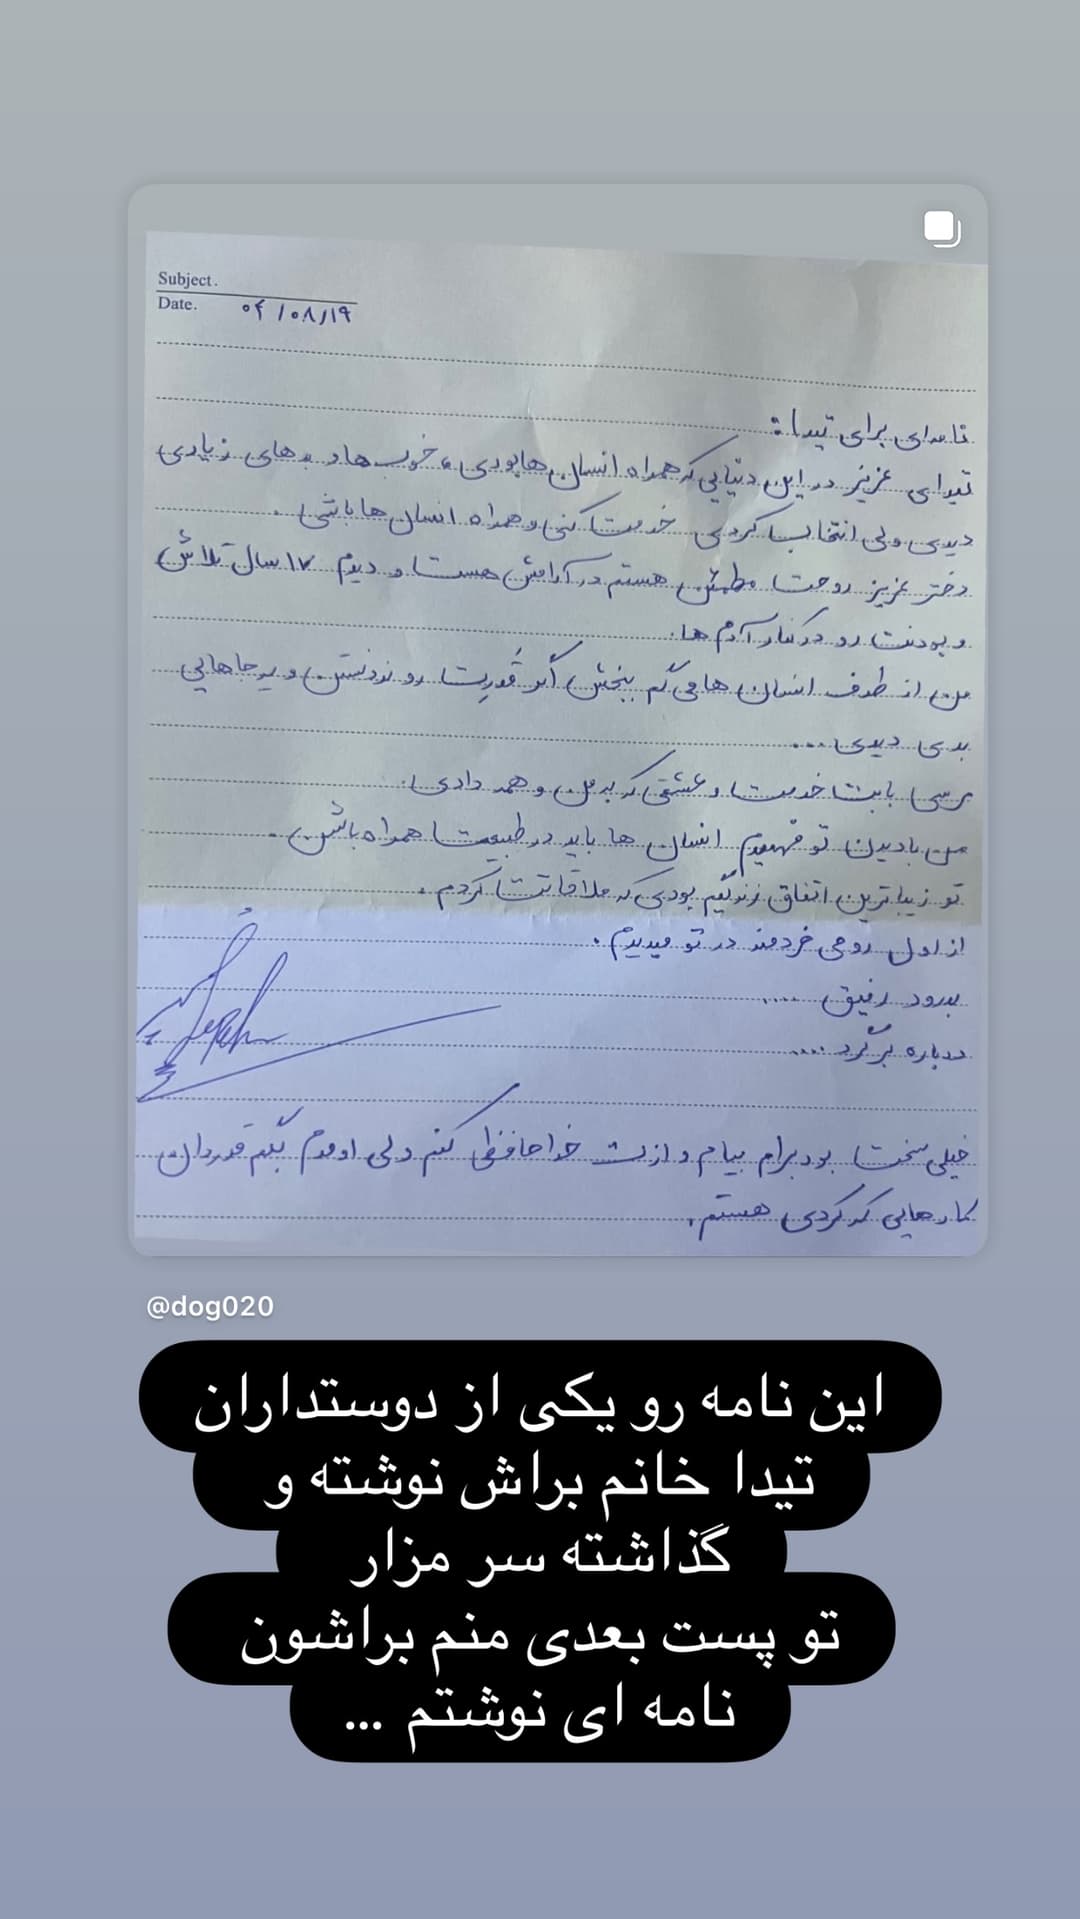 Subject.
Date. ۰۴/۰۸/۱۹
نامه‌ای برای تیدا:
تیدای عزیز در این دنیایی که همراه انسان ها بودی، خوب ها و بدهای زیادی
دیدی ولی انتخاب کردی خدمت کنی و همراه انسان ها باشی.
دختر عزیز روحت مطمئن هستم در آرامش هست و دیدم ۱۷ سال تلاش
و بودنت رو در کنار آدم ها.
من از طرف انسان ها می گم ببخش اگر قدرت رو ندونستن و یه جاهایی
بدی دیدی ...
مرسی بابت خدمت و عشقی که به من و همه دادی.
من با دیدن تو فهمیدم انسان ها باید در طبیعت همراه باشن.
تو زیباترین اتفاق زندگیم بودی که ملاقاتت کردم.
از اول روحی خردمند در تو میدیدم.
بدرود رفیق ....
دوباره برگرد ....
خیلی سخت بود برام بیام و ازت خداحافظی کنم ولی اومدم بگم قدردان
کارهایی که کردی هستم.
@dog020
این نامه رو یکی از دوستداران
تیدا خانم براش نوشته و
گذاشته سر مزار
تو پست بعدی منم براشون
نامه ای نوشتم ...